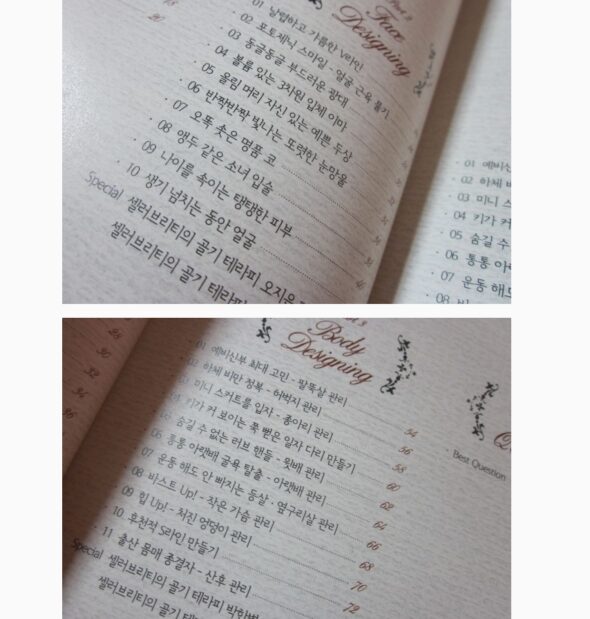 Part 2
Face
Designing
01 날렵하고 갸름한 V라인
02 포토제닉 스마일 - 얼굴 근육 풀기
03 둥글둥글 부드러운 광대
04 볼륨 있는 3차원 입체 이마
05 올림 머리 자신 있는 예쁜 두상
06 반짝반짝 빛나는 또렷한 눈망울
07 오똑 솟은 명품 코
08 앵두 같은 소녀 입술
09 나이를 속이는 탱탱한 피부
10 생기 넘치는 동안 얼굴
Special 셀러브리티의 골기 테라피 오지은
셀러브리티의 골기 테라피
01 예비신
02 하체 비
03 미니 스
04 키가 커
05 숨길 수
06 통통 아
07 운동 해도
08
28
30
32
34
36
Body
Designing
01 예비신부 최대 고민 - 팔뚝살 관리 54
02 하체 비만 정복 - 허벅지 관리 56
03 미니 스커트를 입자 - 종아리 관리 58
04 키가 커 보이는 쭉 뻗은 일자 다리 만들기 60
05 숨길 수 없는 러브 핸들 - 윗배 관리 62
06 통통 아랫배 굴욕 탈출 - 아랫배 관리 64
07 운동 해도 안 빠지는 등살 · 옆구리살 관리 66
08 바스트 Up! - 작은 가슴 관리 68
09 힙 Up! - 처진 엉덩이 관리 70
10 후천적 S라인 만들기 72
11 출산 몸매 종결자 - 산후 관리
Special 셀러브리티의 골기 테라피 박한별
셀러브리티의 골기 테라피
Best Question